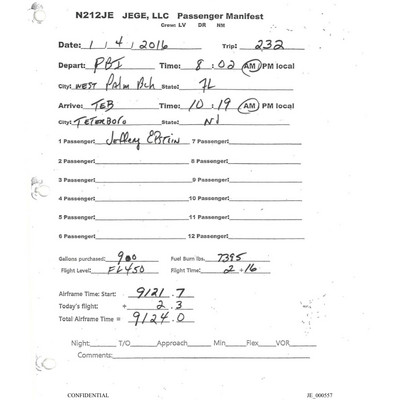 N212JE JEGE, LLC Passenger Manifest
Crew: LV DR NM
Date: 1 / 4 / 2016 Trip: 232
Depart: PBI Time: 8 : 02 AM PM local
City: WEST Palm Bch State: FL
Arrive: TEB Time: 10 : 19 AM PM local
City: TETERBORO State: NJ
1 Passenger: Jeffrey Epstein 7 Passenger:
2 Passenger: 8 Passenger:
3 Passenger: 9 Passenger:
4 Passenger: 10 Passenger:
5 Passenger: 11 Passenger:
6 Passenger: 12 Passenger:
Gallons purchased: 900 Fuel Burn lbs. 7395
Flight Level: FL450 Flight Time: 2 + 16
Airframe Time: Start: 9121 . 7
Today's flight: + 2 . 3
Total Airframe Time = 9124 . 0
Night: T/O Approach Min Flex VOR
Comments:
CONFIDENTIAL JE_000557